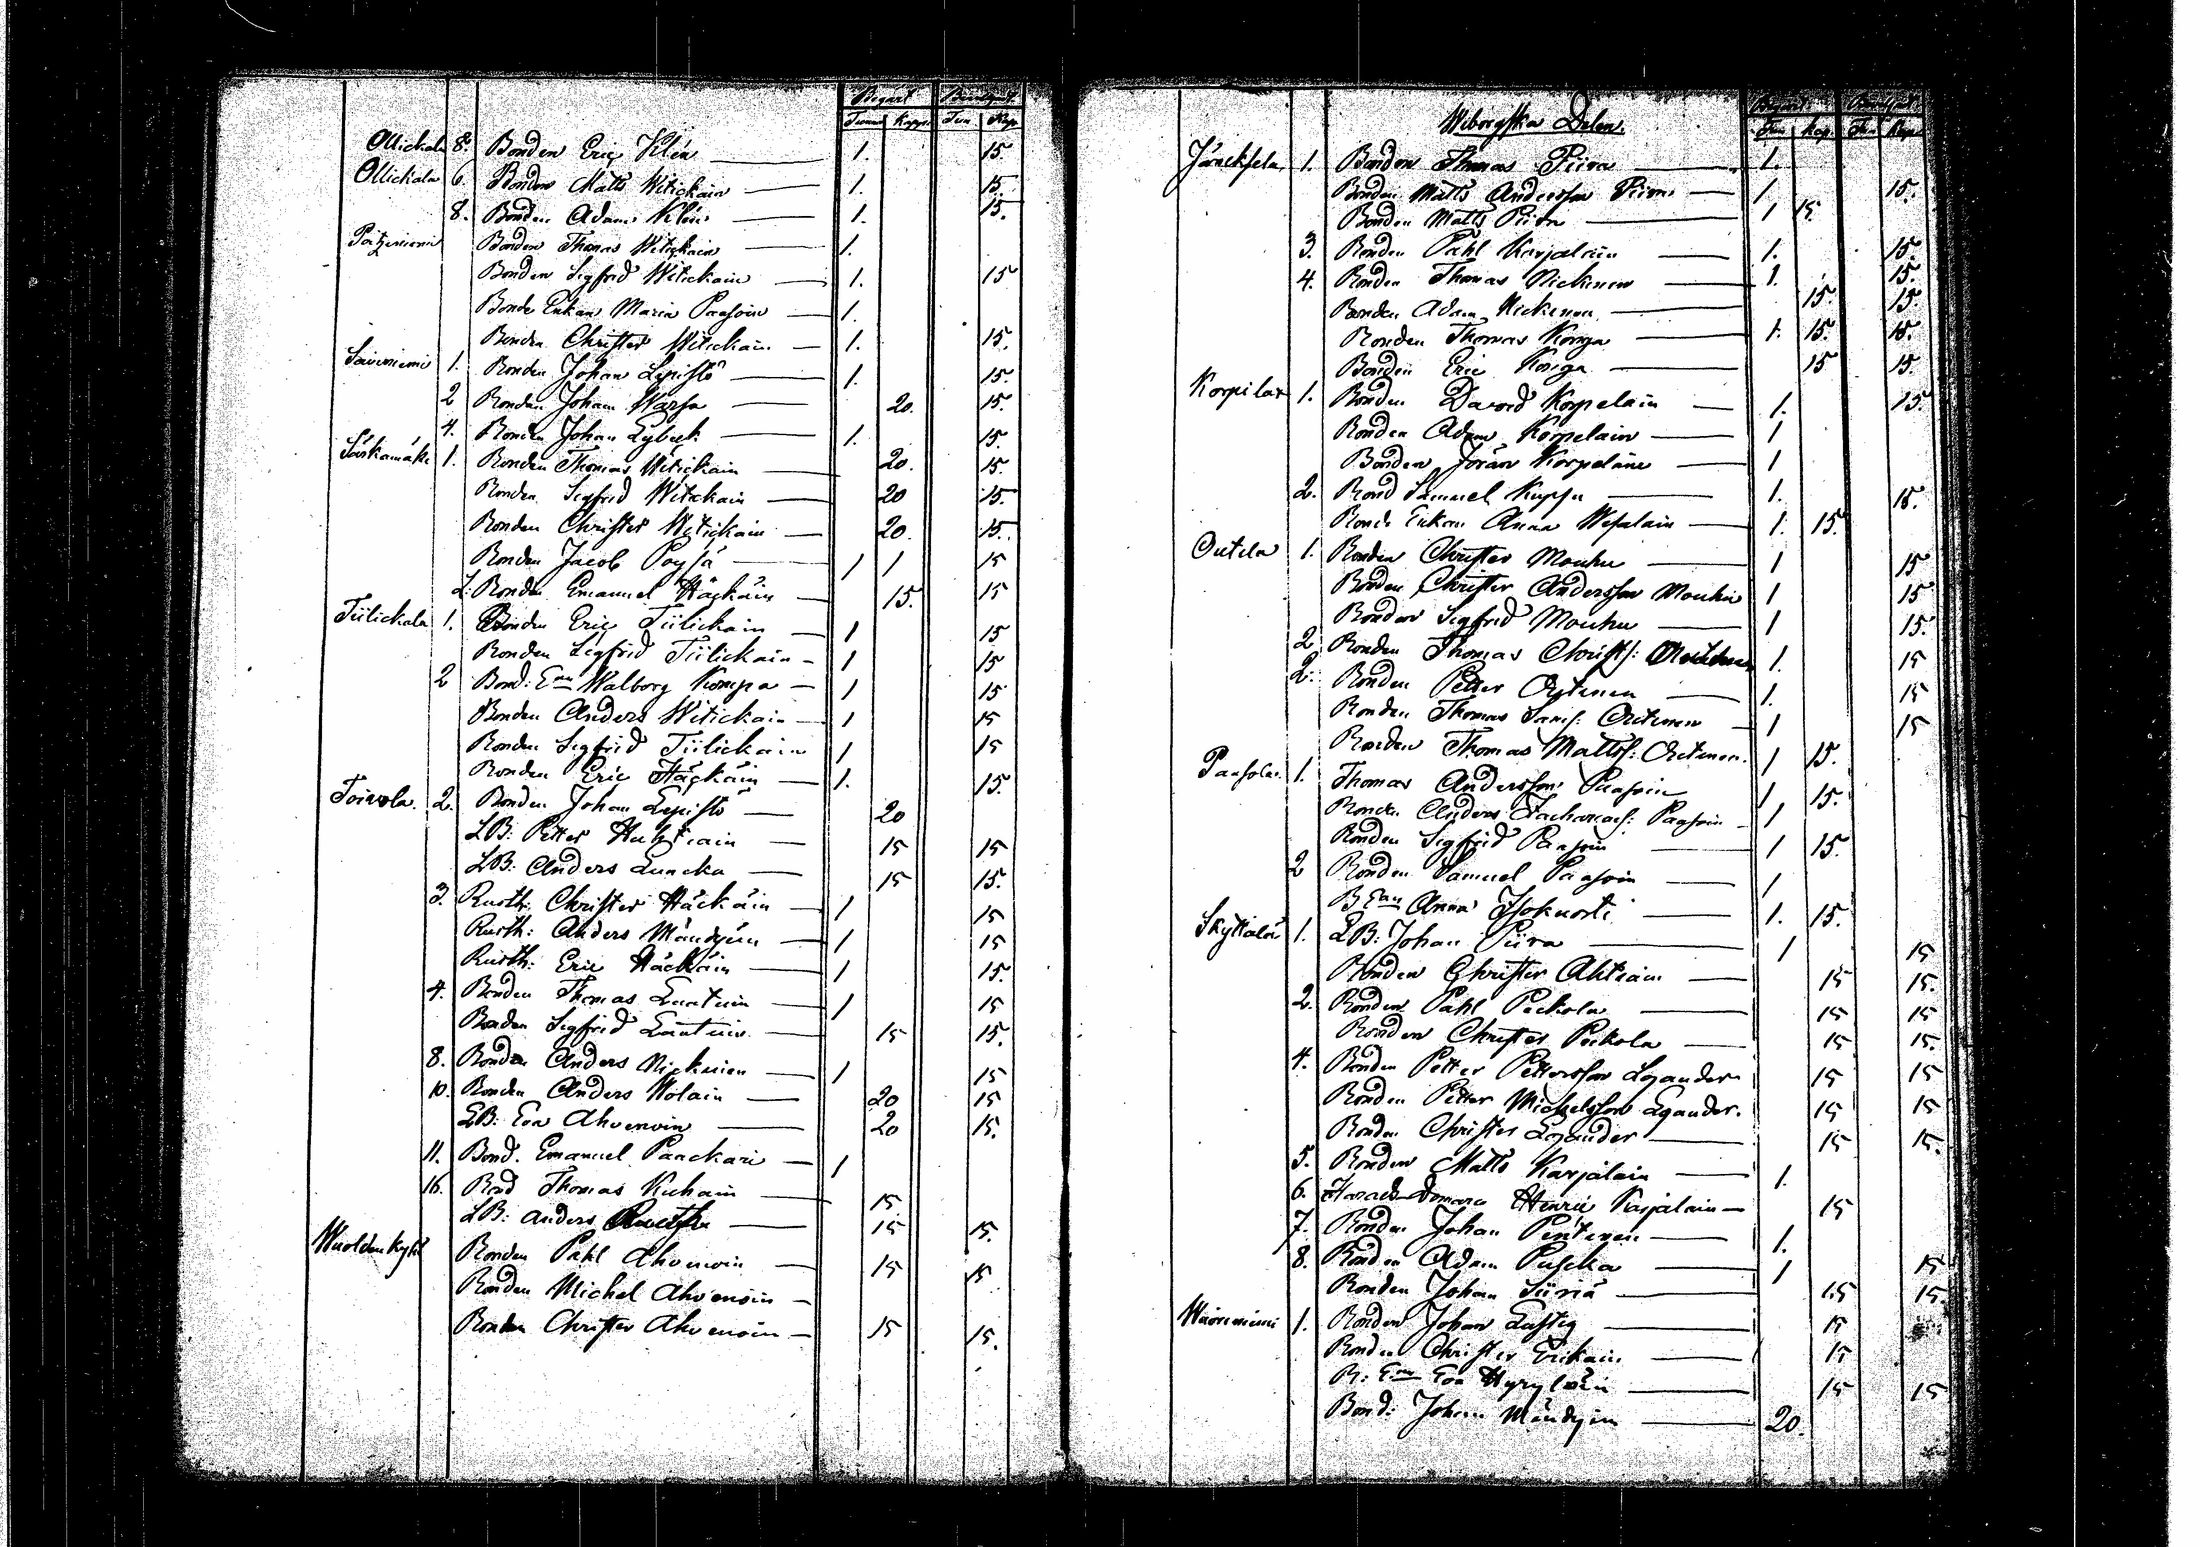 Begärt
Tunnor Kappar Tun Kap
Ollickala 8. Bonden Eric Klén 1. 15.
Ollickala 6. Bonden Matts Witickain 1. 15.
8. Bonden Adam Klén 1. 15.
Bonden Thomas Witickain 1.
Bonden Sigfrid Witickain 1. 15
Bonde Enkan Maria Paasoin 1.
Bonden Christer Witickain 1. 15.
Saiviniemi 1. Bonden Johan Lepistö 1. 15.
2 Bonden Johan Warfa 20. 15.
4. Bonden Johan Lybeck 1. 15.
Särkamäki 1. Bonden Thomas Witickain 20. 15.
Bonden Sigfrid Witickain 20 15.
Bonden Christer Witickain 20. 15.
Bonden Jacob Poysä 1 1 15
2. Bonden Emanuel Häckäin 15. 15
Tiilickala 1. Bonden Eric Tiilickain 1 15
Bonden Sigfrid Tiilickain 1 15
2 Bond: Enn Walborg Kompa 1 15
Bonden Anders Witickain 1 15
Bonden Sigfrid Tiilickain 1 15
Bonden Eric Häckäin 1. 15.
Toivola. 2. Bonden Johan Lepistö 20
LB: Petter Huhtiain 15 15
LB: Anders Luncka 15 15.
3. Rusth: Christer Häckäin 1 15
Rusth: Anders Mändyin 1 15
Rusth: Eric Häckäin 1 15.
4. Bonden Thomas Luntuin 1 15
Bonden Sigfrid Luntuin 15 15.
8. Bonden Anders Nickinen 1 15
10. Bonden Anders Wolain 20 15
LB: Eva Ahvenoin 20 15.
11. Bond. Emanuel Paackari 1
16. Bond Thomas Kuhain 15
LB: Anders 15 15.
Bonden Pahl Ahvenoin 15 15
Bonden Michel Ahvenoin
Bonden Christer Ahvenoin 15 15.
Wiborgska Delen.
Begärt
Tun Kap. Tun Kap
Järnefeltn 1. Bonden Thomas Piira 1.
Bonden Matts Andersson Piira 1 15.
Bonden Matts Piira 1 15.
3. Bonden Pahl Karjalain 1. 15.
4. Bonden Thomas Nickinen 1. 15.
Bonden Adam Nickinen 15. 15.
Bonden Thomas Konga 1. 15. 15.
Bonden Eric Konga 15 15.
Korpilax 1. Bonden David Korpelain 1. 15.
Bonden Adam Korpelain 1
Bonden Jöran Korpelain 1
2. Bond Samuel Kuppa 1. 15.
Bonde Enkan Anna Wesalain 1. 15.
Outela 1. Bonden Christer Mouhu 1 15
Bonden Christer Andersson Mouhu 1 15
Bonden Sigfrid Mouhu 1 15.
2 Bonden Thomas Christs: 1. 15
2. Bonden Petter Outinen 1. 15
Bonden Thomas Sams: Outinen 1 15
Bonden Thomas Matts: Outinen. 1 15.
Paasola. 1. Thomas Andersson Paasoin 1 15.
Bonden Anders Zacharias: Paasoin 1
Bonden Sigfrid Paasoin 1 15.
2 Bonden Samuel Paasoin 1
B Enn Anna Isokuorti 1. 15.
Skyttälä 1. LB: Johan Piira 1 15
Bonden Christer Ahtiain 15 15.
2. Bonden Pahl Peckola 15 15
Bonden Christer Peckola 15 15.
4. Bonden Petter Pettersson Logander 15 15
Bonden Petter Michelsson Logander. 15 15
Bonden Christer Logander 15 15.
5. Bonden Matts Karjalain 1.
6. Härads Domare Henric Karjalain 15
7. Bonden Johan Pentinen 1.
8. Bonden Adam Puscka 1 15
Bonden Johan Siiriä 15 15.
1. Bonden Johan Lustig 15
Bonden Christer Erikain 15
B: Enn Eva Hyryläin 15 15
Bond: Johan Mändyin 20.